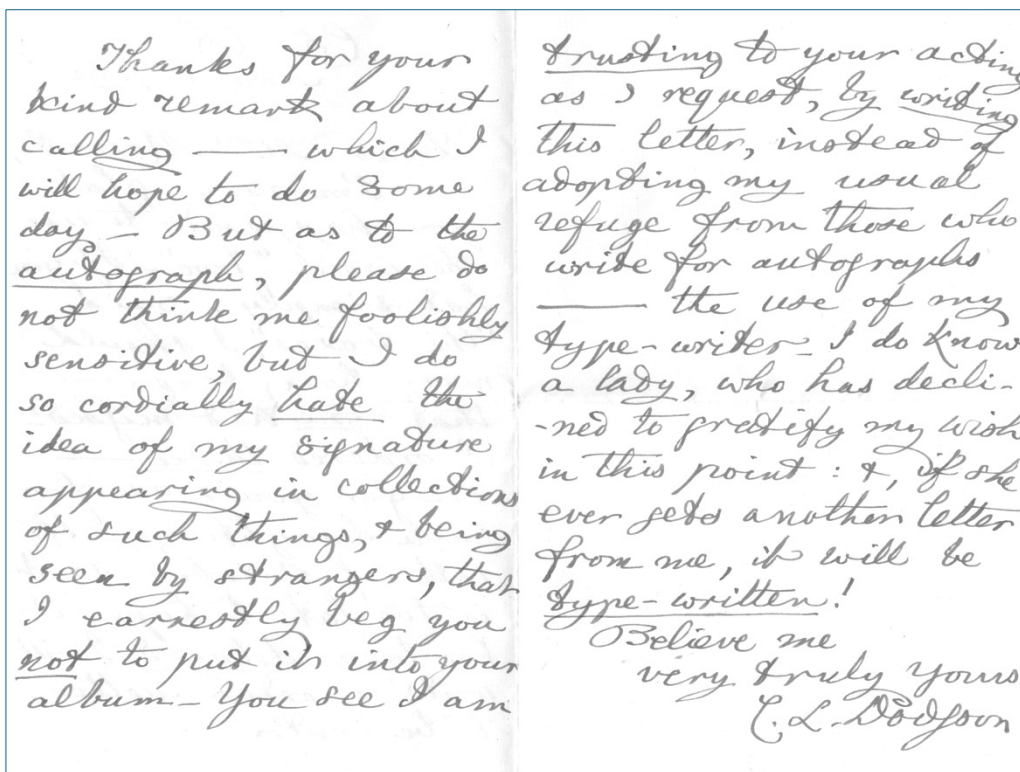 Thanks for your
kind remark about
calling — which I
will hope to do some
day — But as to the
autograph, please do
not think me foolishly
sensitive, but I do
so cordially hate the
idea of my signature
appearing in collections
of such things, & being
seen by strangers, that
I earnestly beg you
not to put it into your
album — You see I am
trusting to your acting
as I request, by writing
this letter, instead of
adopting my usual
refuge from those who
write for autographs
— the use of my
type-writer — I do know
a lady, who has decli-
-ned to gratify my wish
in this point : &, if she
ever gets another letter
from me, it will be
type-written!
Believe me
very truly yours
C. L. Dodgson